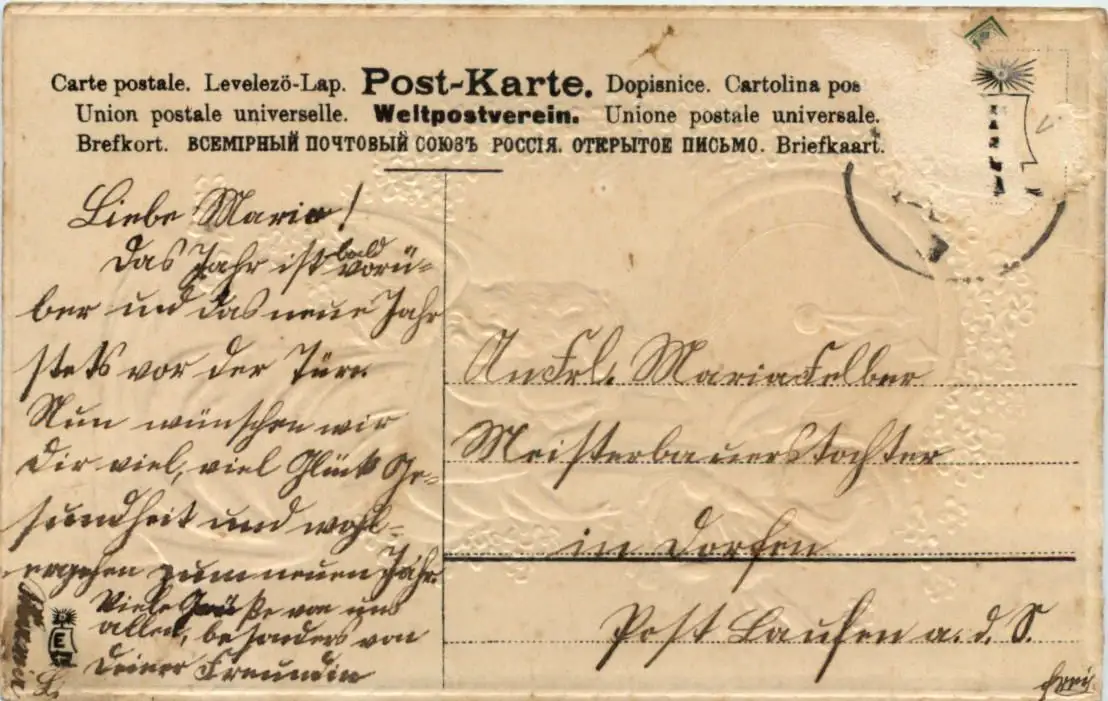 Carte postale. Levelező-Lap. Post-Karte. Dopisnice. Cartolina pos
Union postale universelle. Weltpostverein. Unione postale universale.
Brefkort. ВСЕМІРНЫЙ ПОЧТОВЫЙ СОЮЗЪ РОССІЯ. ОТКРЫТОЕ ПИСЬМО. Briefkaart.
Liebe Marie!
Das Jahr ist bald vorü-
ber und das neue Jahr
stets vor der Türe
Nun wünschen wir
Dir viel, viel Glück Ge-
sundheit und wohl-
ergehen zum neuen Jahr
Viele Grüße von uns
allen, besonders von
Deiner Freundin
E
An Frl. Maria Felber
Meisterbauerstochter
in Dorfen
Post Laufen a. d. S.